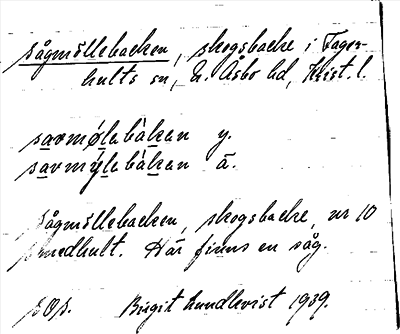 sågmöllebacken, skogsbacke i Fager-
hults sn, N. Åsbo hd, Krist. l.
savmølebàken y.
savmýlebàken ä.
Sågmöllebacken, skogsbacke, nr 10
Smedhult. Här finns en såg.
Birgit Lundkvist 1939.